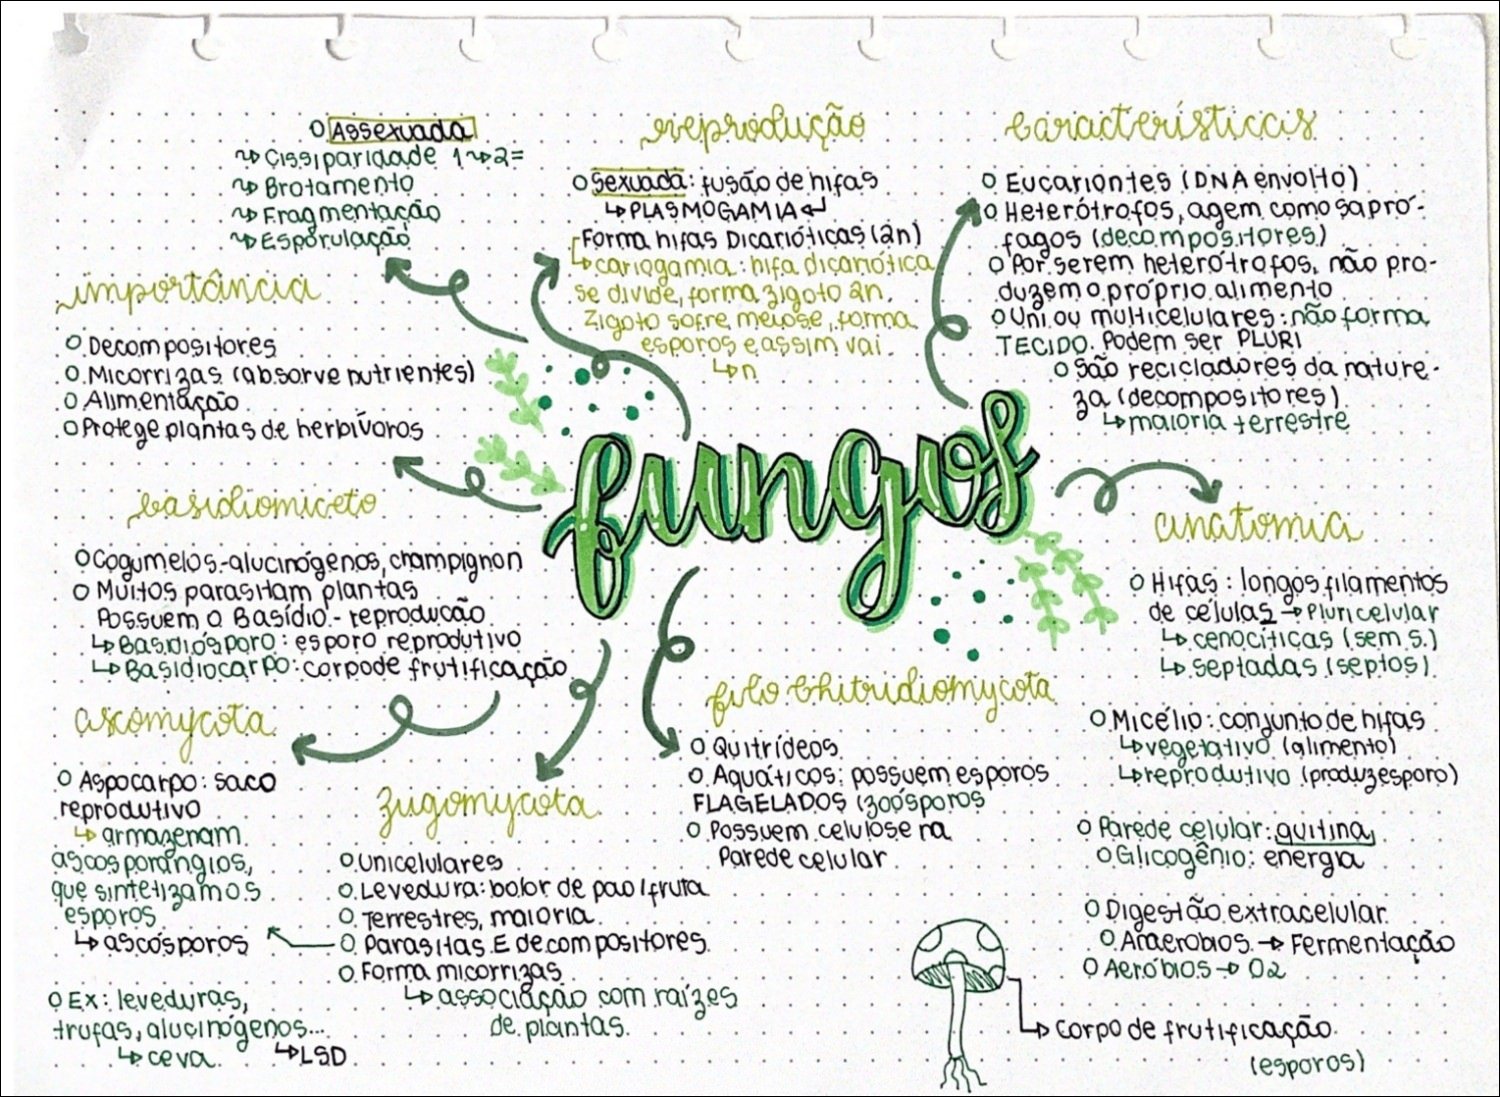 Assexuada
Cissiparidade 1→2=
Brotamento
Fragmentação
Esporulação
reprodução
Sexuada: fusão de hifas
PLASMOGAMIA
Forma hifas Dicarióticas (2n)
cariogamia: hifa dicariótica
se divide, forma zigoto 2n.
Zigoto sofre meiose, forma
esporos e assim vai.
n
características
Eucariontes (DNA envolto)
Heterótrofos, agem como sapró-
fagos (decompositores)
Por serem heterótrofos, não pro-
duzem o próprio alimento
Uni ou multicelulares: não forma
TECIDO. Podem ser PLURI
São recicladores da nature-
za (decompositores)
maioria terrestre
importância
Decompositores
Micorrizas (absorve nutrientes)
Alimentação
Protege plantas de herbívoros
fungos
basidiomiceto
Cogumelos-alucinógenos, champignon
Muitos parasitam plantas
Possuem o Basídio - reprodução
Basidiósporo: esporo reprodutivo
Basidiocarpo: corpo de frutificação
anatomia
Hifas: longos filamentos
de células → Pluricelular
cenocíticas (sem s.)
septadas (septos)
Micélio: conjunto de hifas
vegetativo (alimento)
reprodutivo (produz esporo)
Parede celular: quitina
Glicogênio: energia
Digestão extracelular
Anaeróbios → Fermentação
Aeróbios → O2
ascomycota
Aspocarpo: saco
reprodutivo
armazenam
ascosporângios,
que sintetizamos
esporos
ascósporos
Ex: leveduras,
trufas, alucinógenos...
ceva
LSD
zugomycota
Unicelulares
Levedura: bolor de pao/fruta
Terrestres, maioria
Parasitas E decompositores
Forma micorrizas
associação com raízes
de plantas.
filo Chitridiomycota
Quitrídeos
Aquáticos: possuem esporos
FLAGELADOS (zoósporos
Possuem celulose na
Parede celular
corpo de frutificação
(esporos)